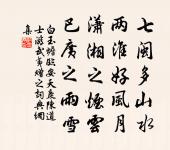 七閩多山水
兩淮好風月
瀟湘之煙雲
巴廣之雨雪
白玉蟾臨安天慶陳道
士游武夷贈之詞典網
集